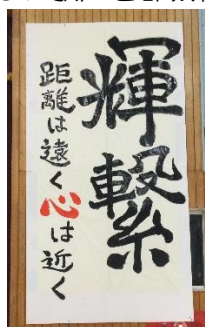 輝繋
距離は遠く心は近く